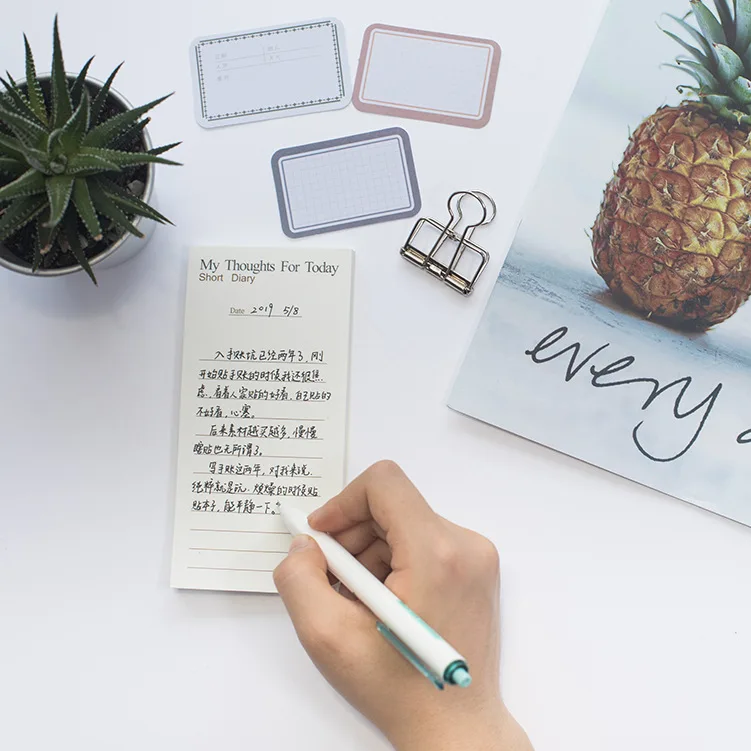 My Thoughts For Today
Short Diary
Date 2019 5/8
入手账坑已经两年了,刚
开始贴手账的时候我还很焦
虑,看着人家贴的好看,自己贴的
不好看,心塞。
后来素材越买越多,慢慢
瞎贴也无所谓了。
写手账这两年,对我来说
纯粹就是玩.烦燥的时候贴
贴本子,能平静一下。
every